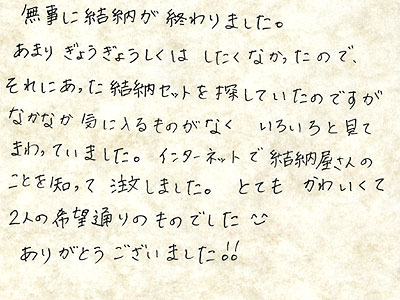 無事に結納が終わりました。
あまりぎょうぎょうしくはしたくなかったので、
それにあった結納セットを探していたのですが
なかなか気に入るものがなく いろいろと見て
まわっていました。インターネットで結納屋さんの
ことを知って注文しました。とてもかわいくて
2人の希望通りのものでした
ありがとうございました!!